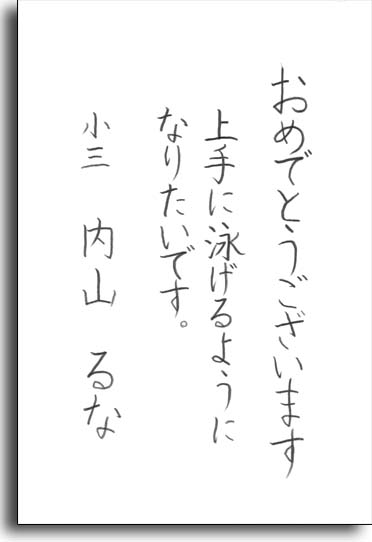 おめでとうございます
上手に泳げるように
なりたいです。
小三 内山 るな